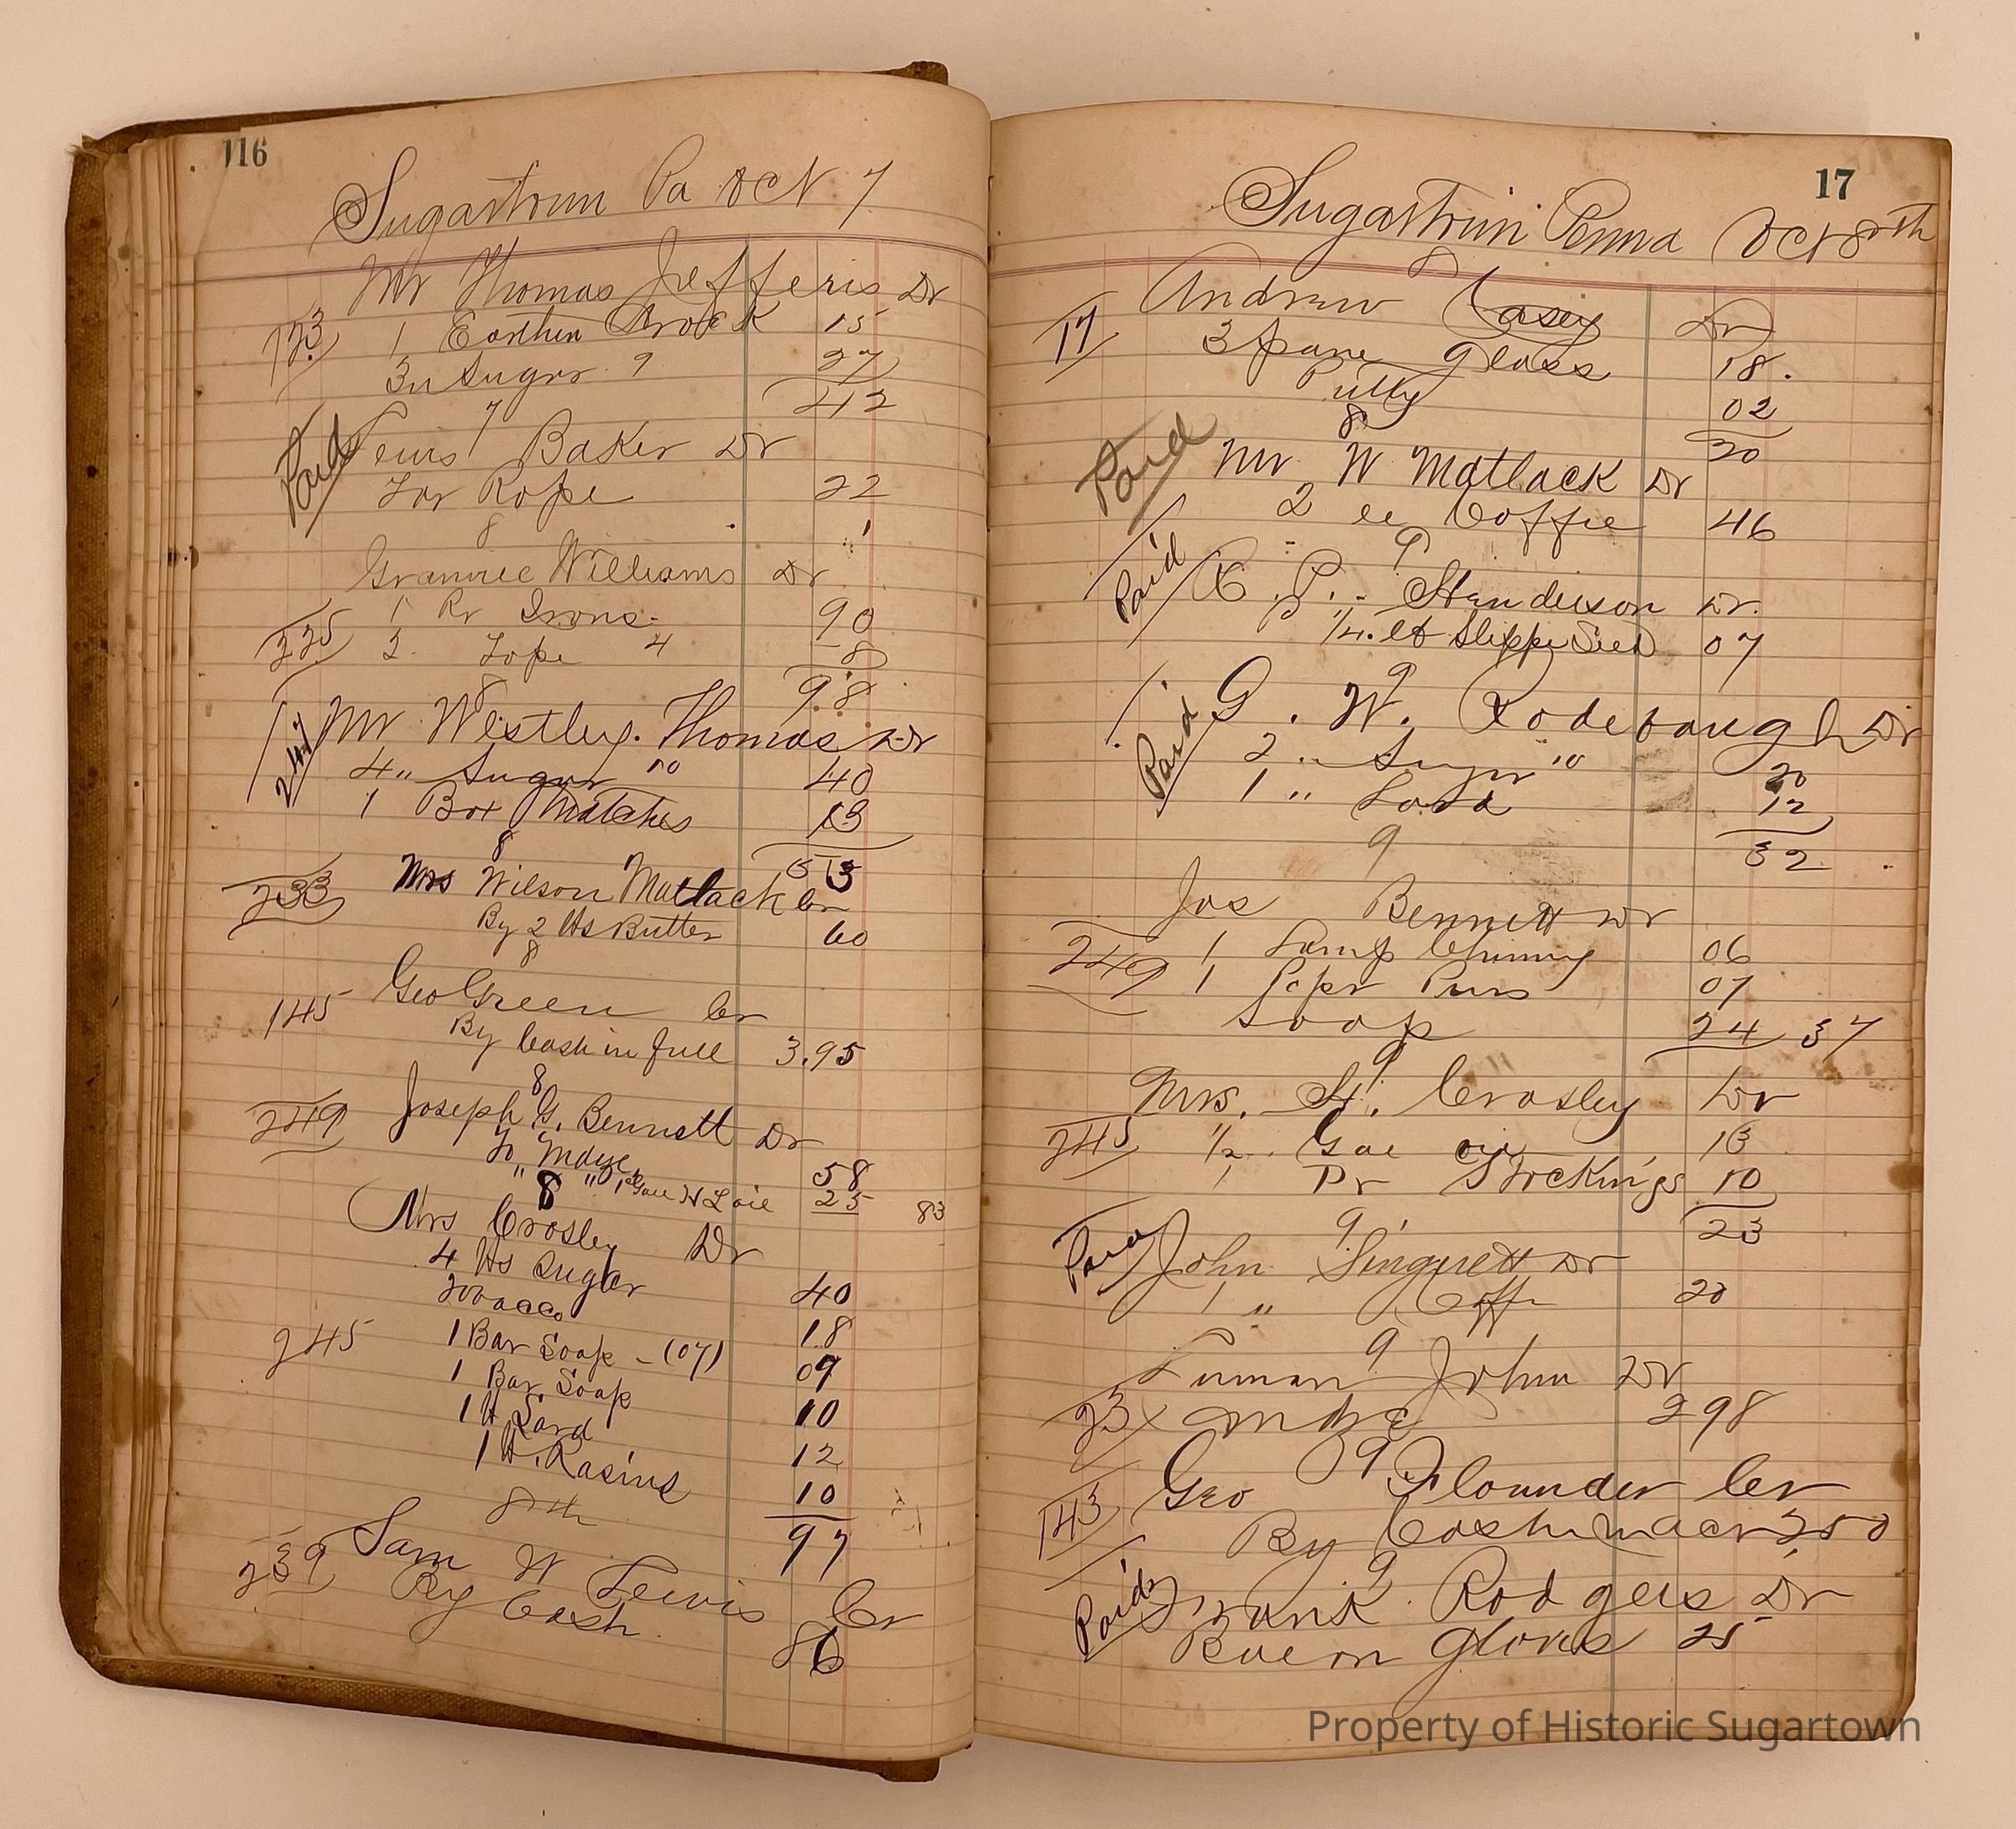 116
Sugartown Pa Oct 7
Mr Thomas Jefferis Dr
123 1 Earthen Crock 15
3 " Sugar 9 27
42
7
Paid Lewis Baker Dr
For Rope 22
8
Grannie Williams Dr
1 Pr Irons 90
225 2 4 8
98
8
247 Mr Westley Thomas Dr
4 " Sugar 10 40
1 Box Matches 13
53
8
233 Mrs Wilson Matlack Cr
By 2 lbs Butter 60
8
145 Geo Green Cr
By Cash in full 3.95
8
249 Joseph G. Bennett Dr
To Mdse 58
" " 1 Gall H L oil 25 83
8
Mrs Crosley Dr
4 lbs Sugar 40
Tobacco 18
245 1 Bar Soap - (07) 07
1 Bar Soap 10
1 lb Lard 12
1 lb. Rasins 10
97
8th
239 Sam W Lewis Cr
By Cash 86
17
Sugartown Penna Oct 8th
8
Andrew Casey Dr
17 3 pane glass 18
Putty 02
20
8
Paid Mr W Matlack Dr
2 Coffie 46
9
Paid C. P. Henderson Dr.
1/4 lb Seed 07
9
Paid G. W. Rodebaugh Dr
2 " Sugar 10 20
1 " Lard 12
32
9
Jos Bennett Dr
249 1 Lamp Chimny 06
1 Papr Pins 07
Soap 24 37
9
Mrs. H. Crosley Dr
245 1/2 Gal oil 13
1 Pr Stockings 10
23
9
Paid John Singuett Dr
1 " Coffe 20
9
Truman John Dr
23 x 298
9
143 Geo Flounder Cr
By Cash in acct 250
9
Paid Frank Rodgers Dr
gloves 25
Property of Historic Sugartown